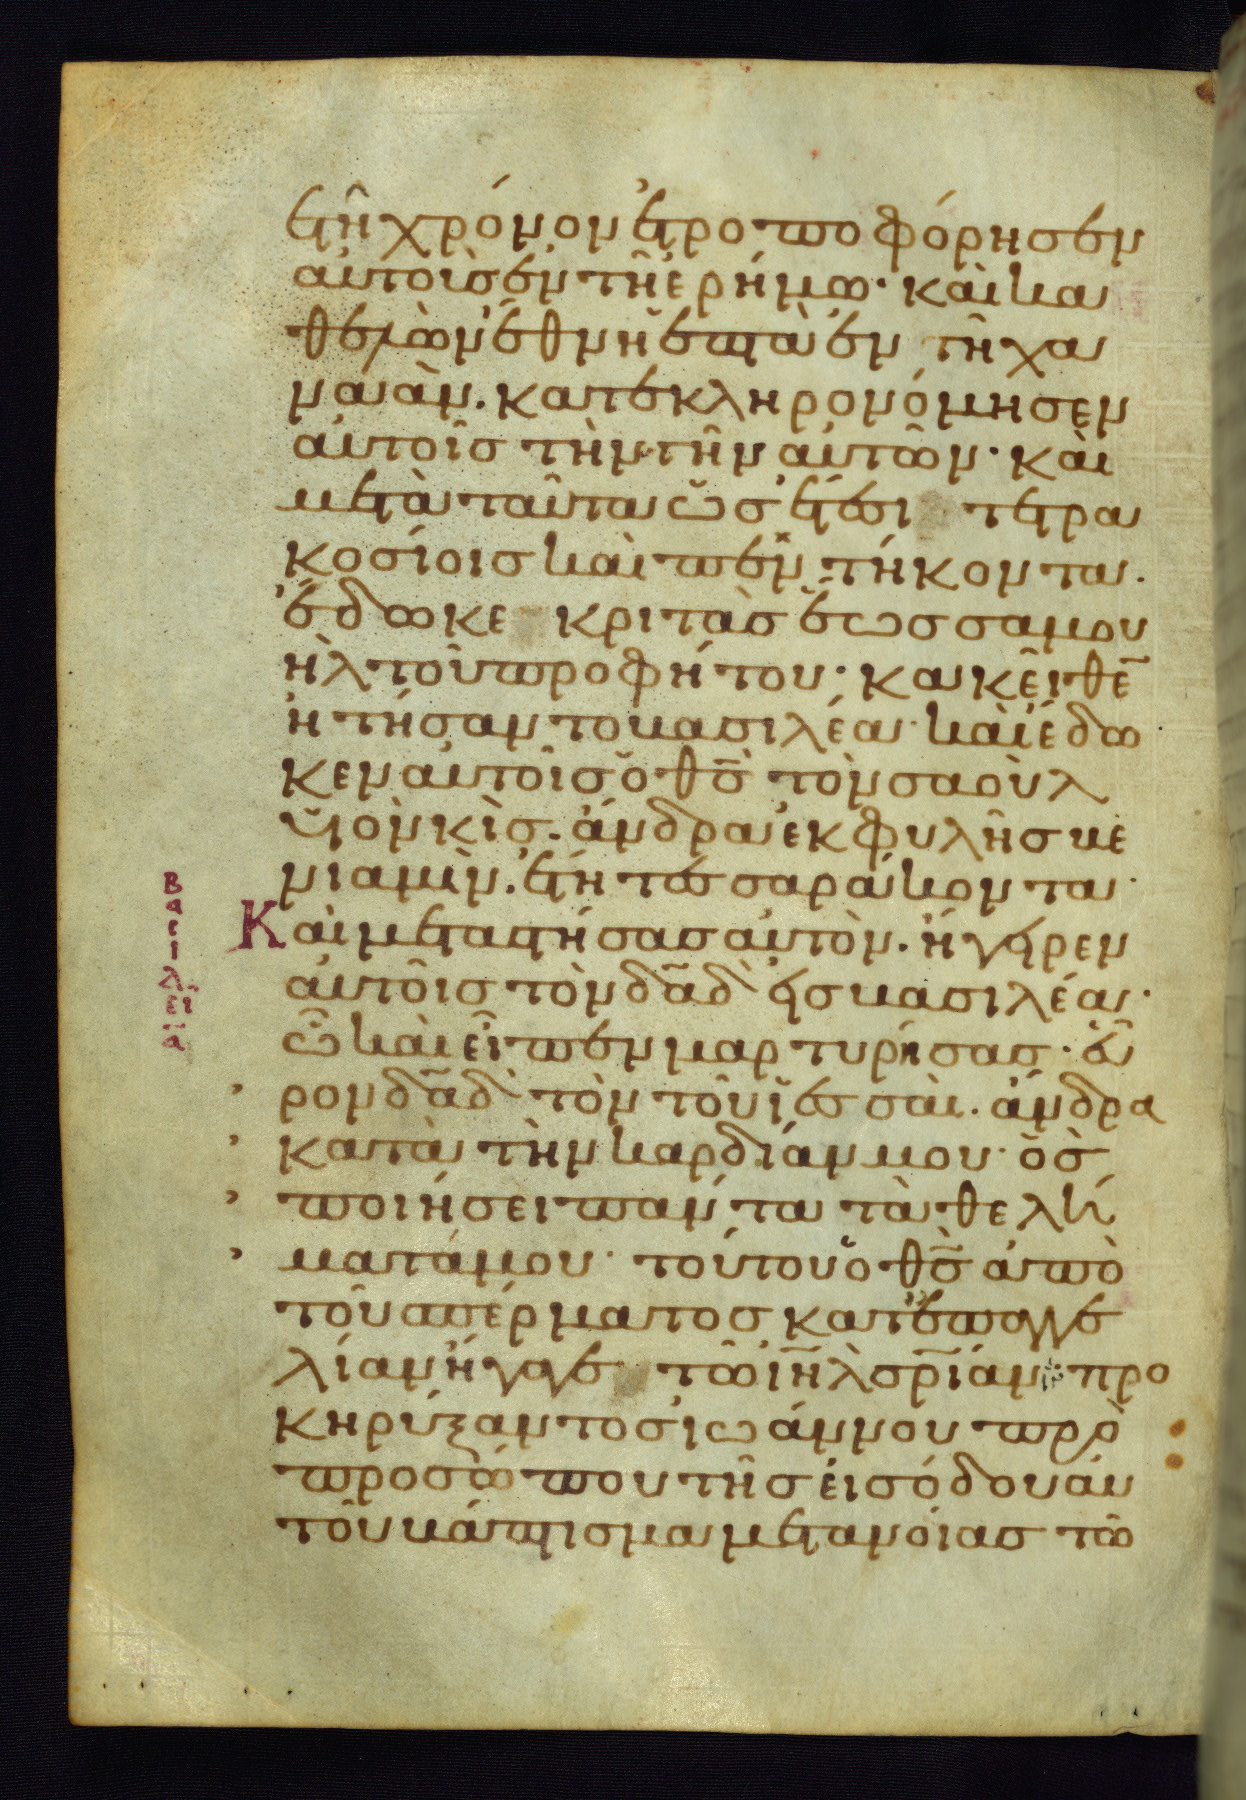 ετῆ χρόνον ἐτροποφόρησεν
αὐτοὺσ ἐν τῆ ἐρήμω· καὶ κα
θελὼν ἔθνη ἑπτὰ ἐν τῆ χα
ναὰν. κατεκληρονόμησεν
αὐτοῖσ τὴν γῆν αὐτῶν· καὶ
μετὰ ταῦτα ὡσ ἔτεσι τετρα
κοσίοισ καὶ πεντήκοντα.
ἔδωκε κριτὰσ ἕωσ σαμου
ὴλ τοῦ προφήτου· κακεῖθε̄
ἠτήσαν το βασιλέα· καὶ ἔδω
κεν αὐτοῖσ ὁ θ̄σ̄ τὸν σαοὺλ
ϋἱὸν κὶσ. ἄνδρα ἐκ φυλῆσ βε
νιαμὶν. ἔτη τεσσαράκοντα·
Καὶ μεταστήσασ αὐτὸν. ἤγειρεν
αὐτοῖσ τὸν δ̄ᾱδ̄ εἰσ βασιλέα·
ὧ καὶ εῖπεν μαρτυρήσασ· εὗ
ρον δ̄ᾱδ̄ τὸν τοῦ ϊεσσαὶ. ἄνδρα
κατὰ τὴν καρδίαν μου· ὃσ
ποιήσει πάντα τὰ θελή
ματά μου· τούτου ὁ θ̄σ̄ ἀπὸ
τοῦ σπέρματοσ κατ' ἐπαγγε
λίαν ἤγαγε τῶ ῑη̄λ̄ σ̄ρ̄ίαν· προ
κηρύξαντοσ ἰωάννου πρὸ
προσώπου τῆσ εἰσόδου αὐ
τοῦ βάπτισμα μετανοίασ τῶ
Βασιλεία